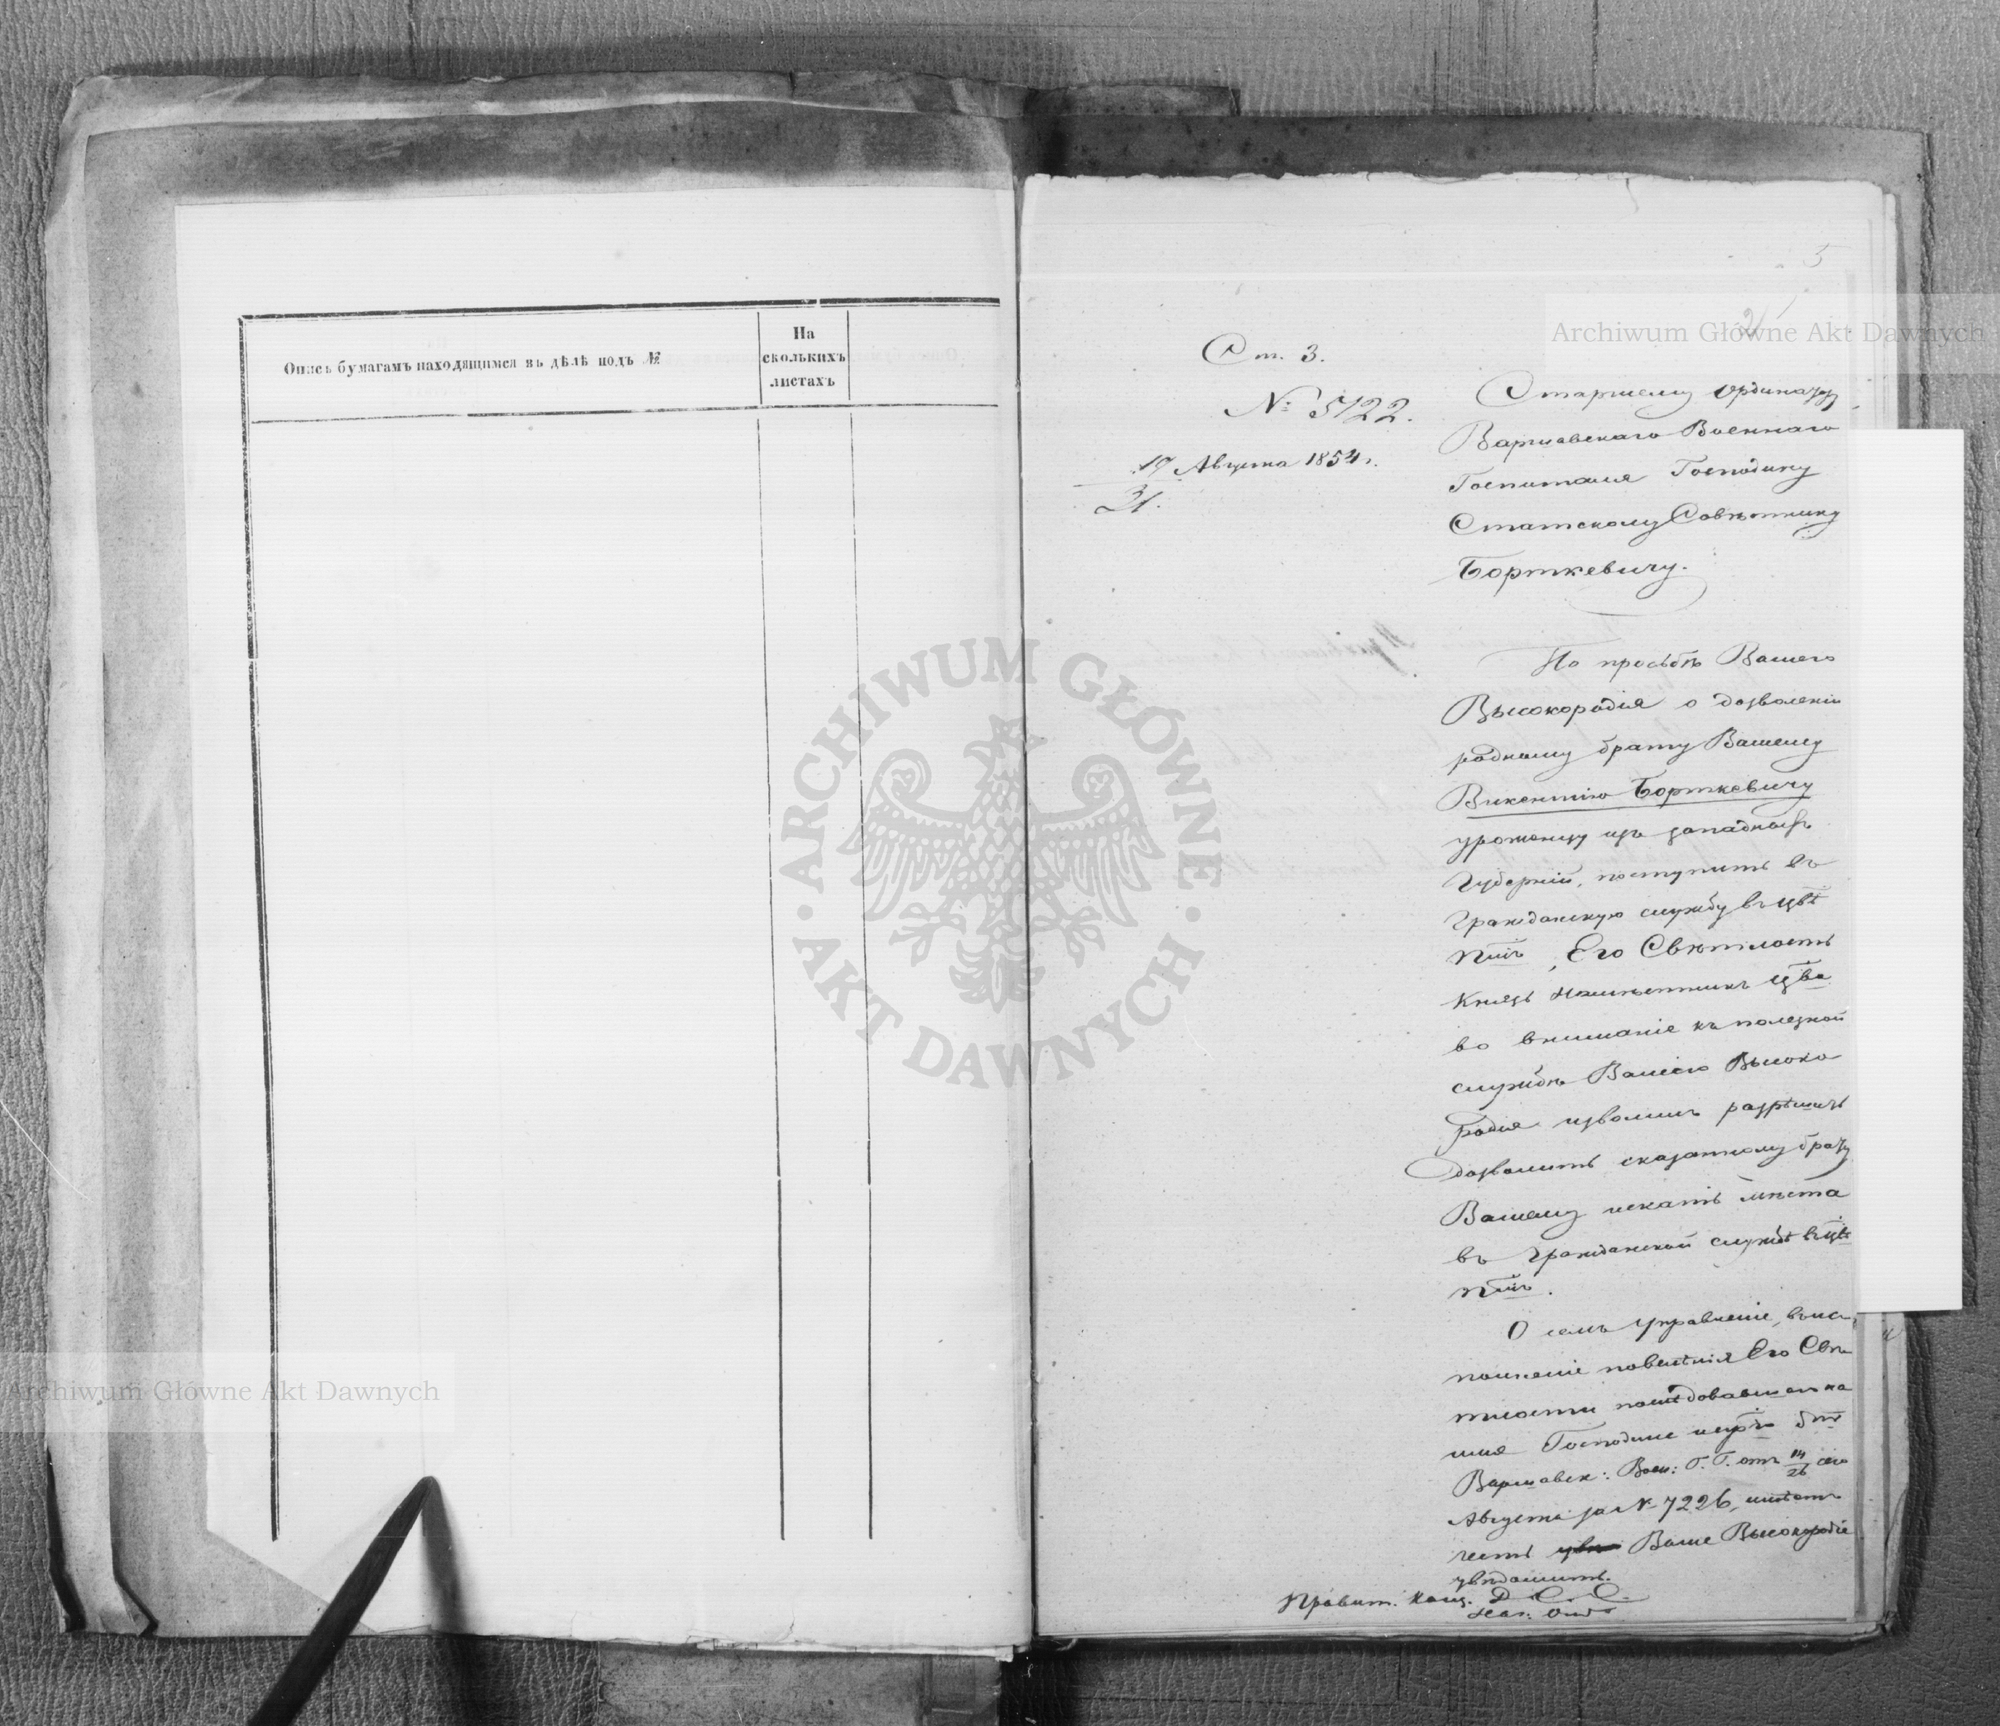 Опись бумагамъ находящимся въ дѣлѣ подъ №
На
сколькихъ
листахъ
5
2
Archiwum Główne Akt Dawnych
Ст. 3.
№ 5122.
19/31. Августа 1854 г.
Старшему Ординатору
Варшавскаго Военнаго
Госпиталя Господину
Статскому Совѣтнику
Борткевичу.
По просьбѣ Вашего
Высокородія о дозволеніи
родному брату Вашему
Викентію Борткевичу
уроженцу изъ западныхъ
Губерній, поступить въ
Гражданскую службу въ Цвѣ
Пмъ, Его Свѣтлость
Князь Намѣстникъ Цва
во вниманіе къ полезной
службѣ Вашего Высоко
родія изволилъ разрѣшить
дозволить сказанному брату
Вашему искать мѣста
въ Гражданской службѣ въ Цвѣ
Пмъ.
О семъ Управленіе, въ ис-
полненіе повелѣнія Его Свѣ-
тлости послѣдовавшаго на
имя Господина
Варшавск: Воен: Г. Г. отъ 14/26 сего
Августа за № 7226, имѣетъ
честь Ваше Высокородіе
увѣдомить.
Правит. Канц. Д. С. С.
Нач: Отд
ARCHIWUM GŁÓWNE
AKT DAWNYCH
Archiwum Główne Akt Dawnych